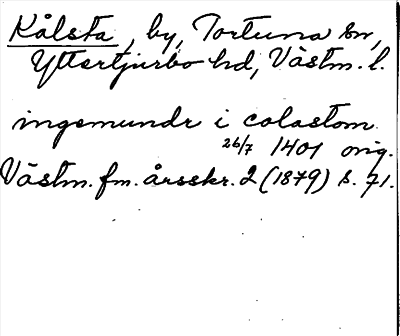 Kålsta, by, Tortuna sn,
Yttertjurbo hd, Västm. l.
ingemundr i colastom
26/7 1401 orig.
Västm. fm. årsskr. 2 (1879) s. 71.